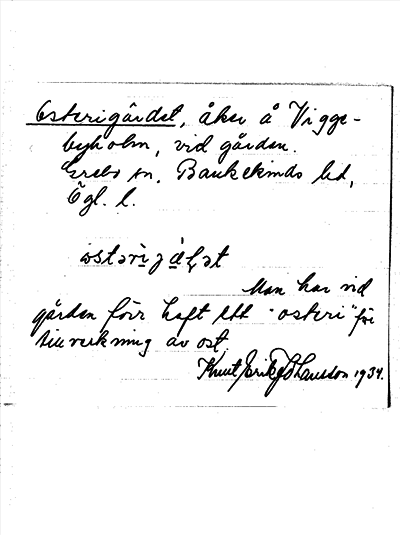 Osterigärdet, åker å Vigge-
byholm, vid gården.
Grebo sn. Bankekinds hd,
Ögl. l.
Man har vid
gården förr haft ett "osteri" för
tillverkning av ost.
Knut Erik Johansson 1934.